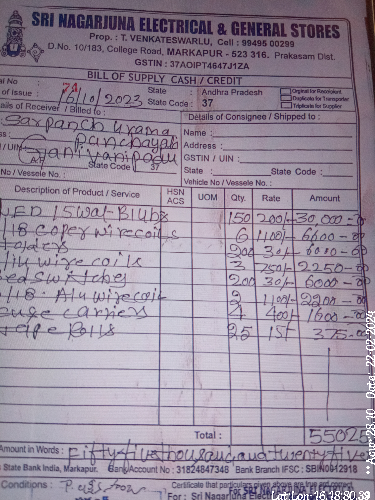 SRI NAGARJUNA ELECTRICAL & GENERAL STORES
Prop. : T. VENKATESWARLU, Cell : 99495 00299
D.No. 10/183, College Road, MARKAPUR - 523 316. Prakasam Dist.
GSTIN : 37AOIPT4647J1ZA
BILL OF SUPPLY CASH / CREDIT
al No : 71 State : Andhra Pradesh Original for Receipient
of issue : 16/10/2023 State Code : 37 Duplicate for Transporter
Triplicate for Supplier
ails of Receiver / Billed to : Details of Consignee / Shipped to :
Sarpanch Grama Name :
Panchayati Address :
/ UIN GSTIN / UIN :
State Code : 37 State : State Code :
No / Vessele No. : Vehicle No / Vessele No. :
Description of Product / Service HSN ACS UOM Qty. Rate Amount
LED 15wat Blubs 150 200/- 30,000-00
/18 Coper wire coils 6 1100/- 6600-00
Holders 200 30/- 6000-00
Alu wire coils 3 750/- 2250-00
Switches 200 30/- 6000-00
/18. Alu wire coil 2 1100/- 2200-00
fuse carriers 4 400/- 1600-00
Tape Rolls 25 15/- 375-00
Total : 55025
Amount in Words : Fifty five thousand and twenty five
State Bank India, Markapur. Bank Account No : 31824847348 Bank Branch IFSC : SBIN0012918
Conditions : Certificate that particulars given above are true and correct
For : Sri Nagarjuna Elect
Date: 22-02-2024
Lat Lon: 16.18 80.39